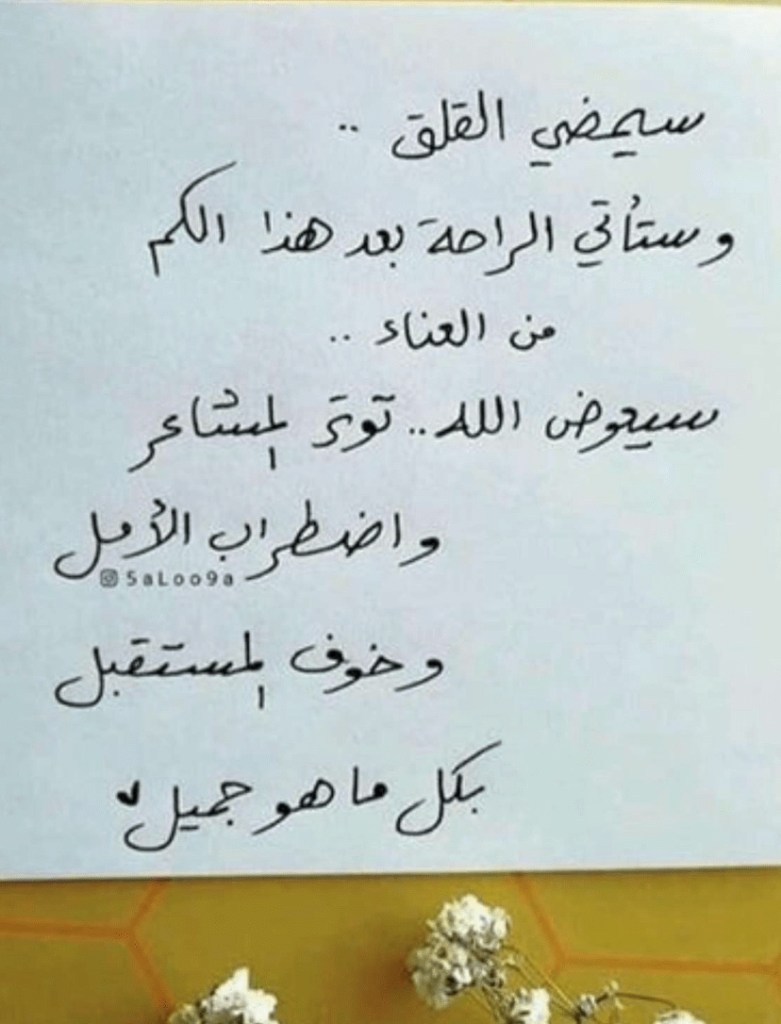 سيمضي القلق ..
وستأتي الراحة بعد هذا الكم
من العناء ..
سيعوض الله .. توتر المشاعر
واضطراب الأمل
5aLoo9a
وخوف المستقبل
بكل ما هو جميل